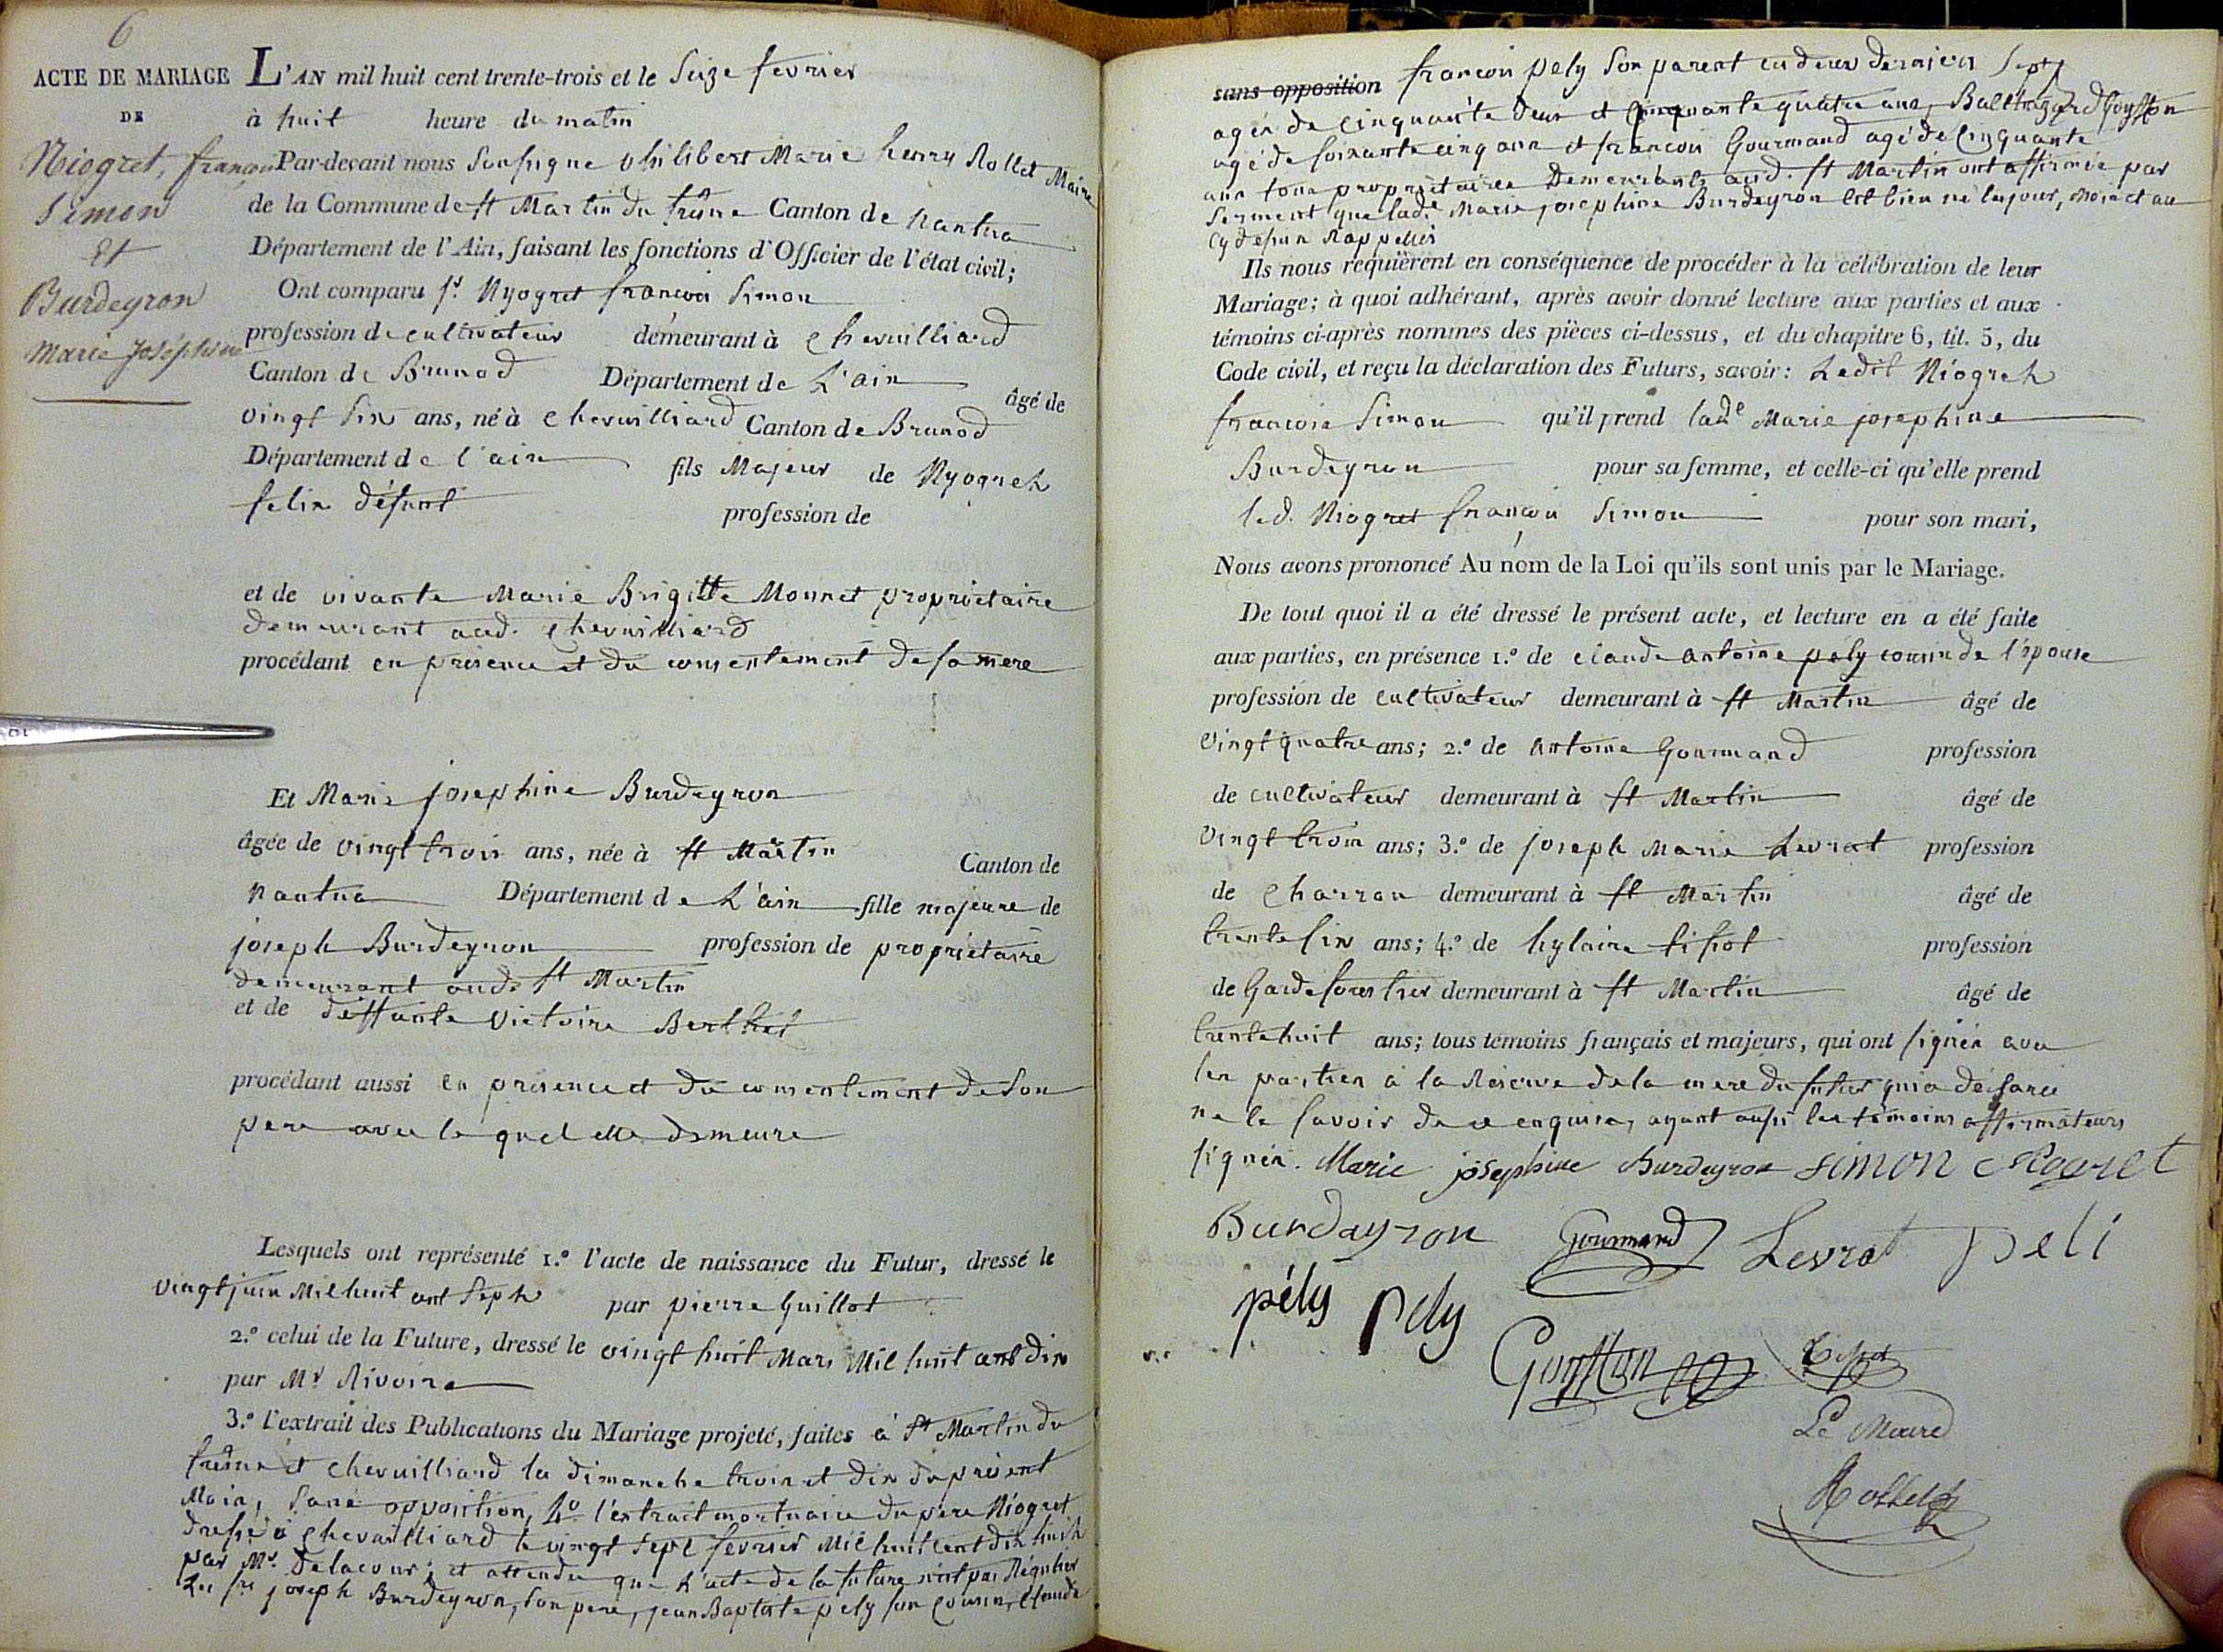 6
ACTE DE MARIAGE
DE
Niogret, francois
Simon
Et
Burdeyron
Marie Joséphine
L'AN mil huit cent trente-trois et le Seize fevrier
à huit heure du matin
Par-devant nous Sousigne philibert Marie henry Rollet Maire
de la Commune de st Martin du frêne Canton de Nantua
Département de l'Ain, faisant les fonctions d'Officier de l'état civil;
Ont comparu sr. Nyogret françois Simon
profession de cultivateur demeurant à chevuilliard
Canton de Brunod Département de L'ain âgé de
vingt six ans, né à chevuilliard Canton de Brunod
Département de l'ain fils Majeur de Nyogret
felix défunt profession de
et de vivante Marie Brigitte Monnet propriétaire
demeurant aud. chevuilliard
procédant en présence et du consentement de sa mere
Et Marie josephine Burdeyron
âgée de vingt trois ans, née à st Martin Canton de
Nantua Département de L'ain fille majeure de
joseph Burdeyron profession de propriétaire
demeurant aud. st Martin
et de deffunte Victoire Berthet
procédant aussi en présence et du consentement de son
pere avec lequel elle demeure
Lesquels ont représenté 1.º l'acte de naissance du Futur, dressé le
vingt juin Mil huit cent Sept par pierre Guillot
2.º celui de la Future, dressé le vingt huit Mars Mil huit cent dix
par Mr Rivoire
3.º l'extrait des Publications du Mariage projeté, faites à St Martin du
frêne et chevuilliard les dimanche trois et dix du présent
Mois, Sans opposition, 4º l'extrait mortuaire du père Niogret
dressé à chevuilliard le vingt Sept fevrier Mil huit cent dix huit
par Mr. Delacour; et attendu que L'acte de la future n'est pas Régulier
Les srs joseph Burdeyron, son pere, jean Baptiste pely son cousin, Claude
sans opposition françois pely son parent ces deux derniers
agés de cinquante deux et cinquante quatre ans, Balthazard Goyffon
agé de soixante cinq ans et françois Gourmand agé de cinquante
ans tous propriétaires Demeurants aud. st Martin ont affirmés par
Serment que lade Marie josephine Burdeyron est bien né les jour, mois et an
cy dessus Rappellés
Ils nous requièrent en conséquence de procéder à la célébration de leur
Mariage; à quoi adhérant, après avoir donné lecture aux parties et aux
témoins ci-après nommés des pièces ci-dessus, et du chapitre 6, tit. 5, du
Code civil, et reçu la déclaration des Futurs, savoir: Ledit Niogret
francois Simon qu'il prend lade Marie josephine
Burdeyron pour sa femme, et celle-ci qu'elle prend
led. Niogret françois Simon pour son mari,
Nous avons prononcé Au nom de la Loi qu'ils sont unis par le Mariage.
De tout quoi il a été dressé le présent acte, et lecture en a été faite
aux parties, en présence 1.º de claude antoine pely cousin de l'épouse
profession de cultivateur demeurant à st Martin âgé de
vingt quatre ans; 2.º de antoine Gourmand profession
de cultivateur demeurant à st Martin âgé de
vingt trois ans; 3.º de joseph Marie Levrat profession
de charron demeurant à st Martin âgé de
trente six ans; 4.º de hylaire tissot profession
de Garde forestier demeurant à st Martin âgé de
trente huit ans; tous témoins français et majeurs, qui ont signés avec
les parties à la Réserve de la mere du futur qui a déclaré
ne le savoir de ce enquise, ayant aussi les témoins affirmateurs
signés. Marie josephine Burdeyron Simon Niogret
Burdayron Gourmand Levrat peli
pély pely
Goyffon Tissot
Le Maire
Rollet